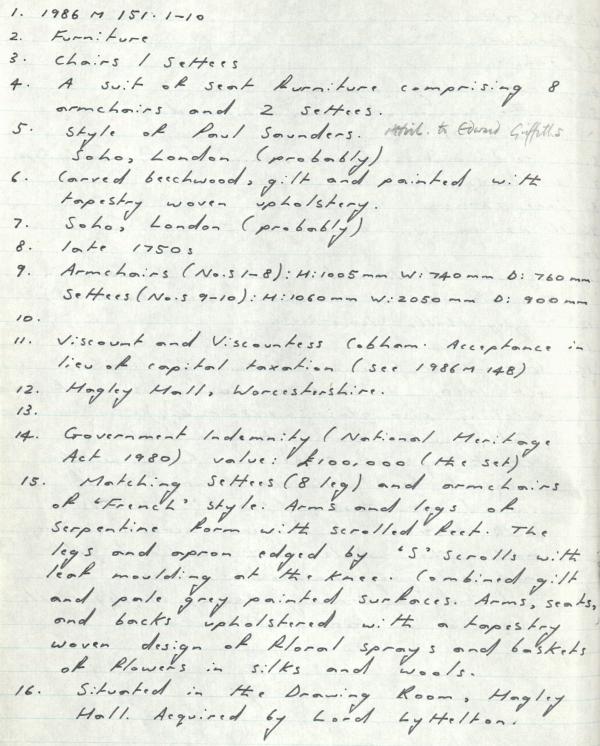 1. 1986 M 151. 1-10
2. Furniture
3. Chairs / Settees
4. A suit of seat furniture comprising 8
armchairs and 2 settees.
5. Style of Paul Saunders. Attrib. to Edward Griffiths
Soho, London (probably)
6. Carved beechwood, gilt and painted with
tapestry woven upholstery.
7. Soho, London (probably)
8. late 1750s
9. Armchairs (No.s 1-8): H:1005mm W:740mm D: 760mm
Settees (No.s 9-10): H:1060mm W:2050mm D: 900mm
10.
11. Viscount and Viscountess Cobham. Acceptance in
lieu of capital taxation (see 1986 M 148)
12. Hagley Hall, Worcestershire.
13.
14. Government Indemnity (National Heritage
Act 1980) value: £100,000 (the set)
15. Matching settees (8 leg) and armchairs
of 'French' style. Arms and legs of
serpentine form with scrolled feet. The
legs and apron edged by 'S' scrolls with
leaf moulding at the knee. Combined gilt
and pale grey painted surfaces. Arms, seats,
and backs upholstered with a tapestry
woven design of floral sprays and baskets
of flowers in silks and wools.
16. Situated in the Drawing Room, Hagley
Hall. Acquired by Lord Lyttelton.